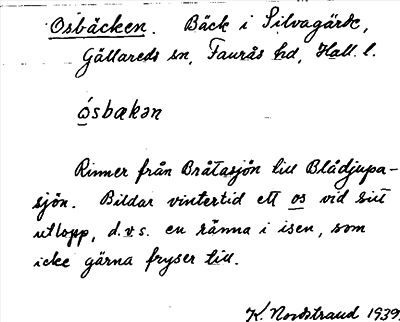 Osbäcken. Bäck i Silvagärde,
Gällareds sn, Faurås hd, Hall. l.
ósbækən
Rinner från Bråtasjön till Blådjupa-
sjön. Bildar vintertid ett os vid sitt
utlopp, d.v.s. en ränna i isen, som
icke gärna fryser till.
K. Nordstrand 1939.